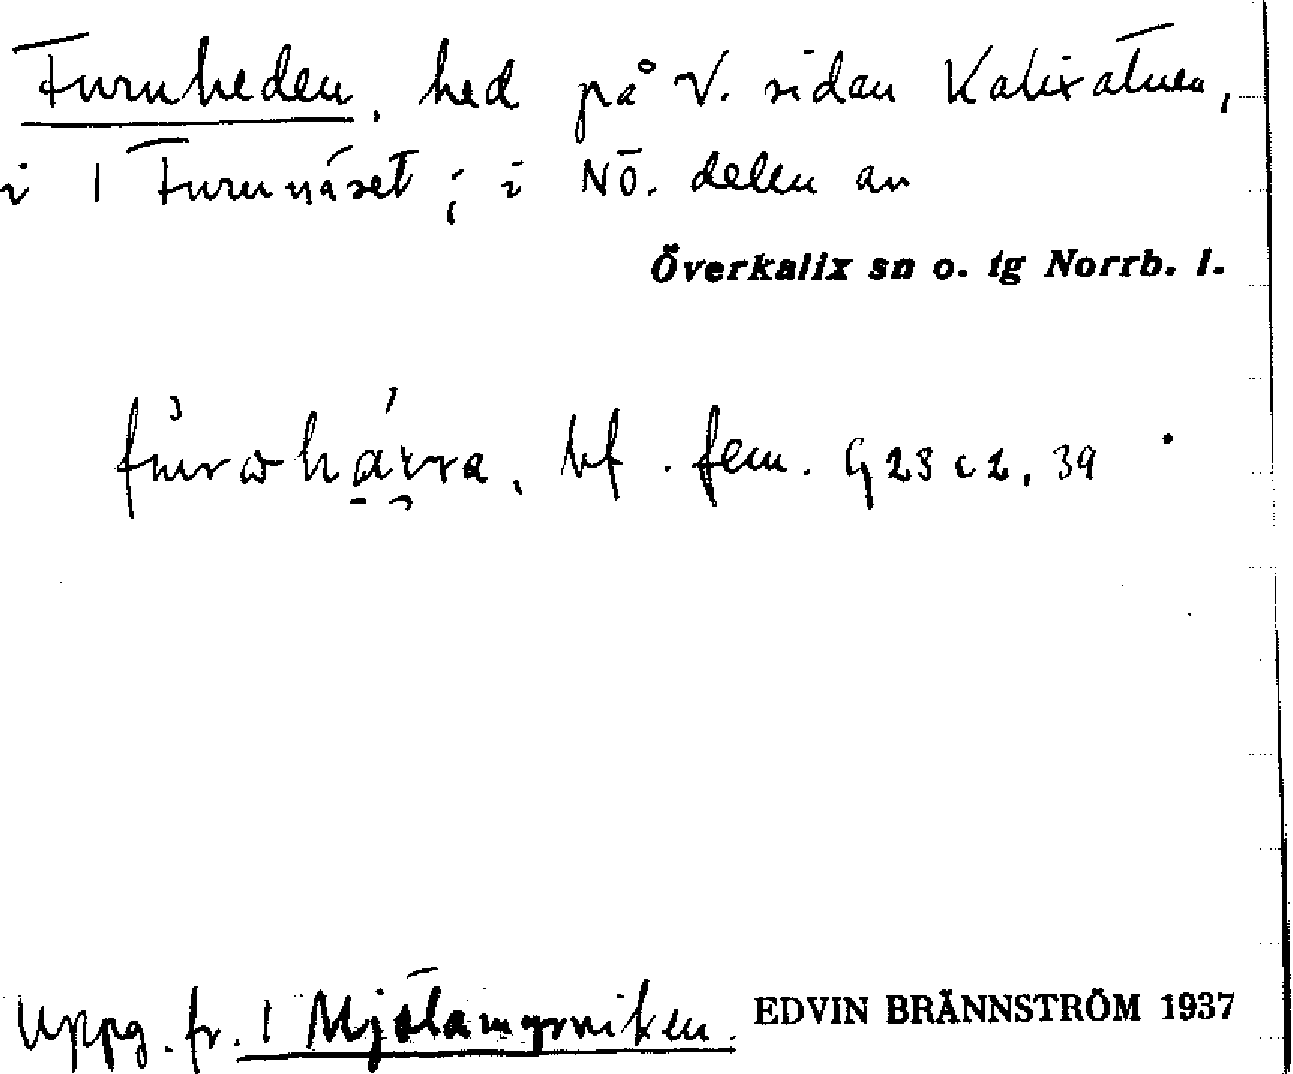 Furuheden, hed på V. sidan Kalixälven,
i 1 Furunäset; i NÖ. delen av
Överkalix sn o. tg Norrb. l.
bf. fem. G 23 c 2, 39
Uppg. fr. 1 Mjölamyrviken. EDVIN BRÄNNSTRÖM 1937